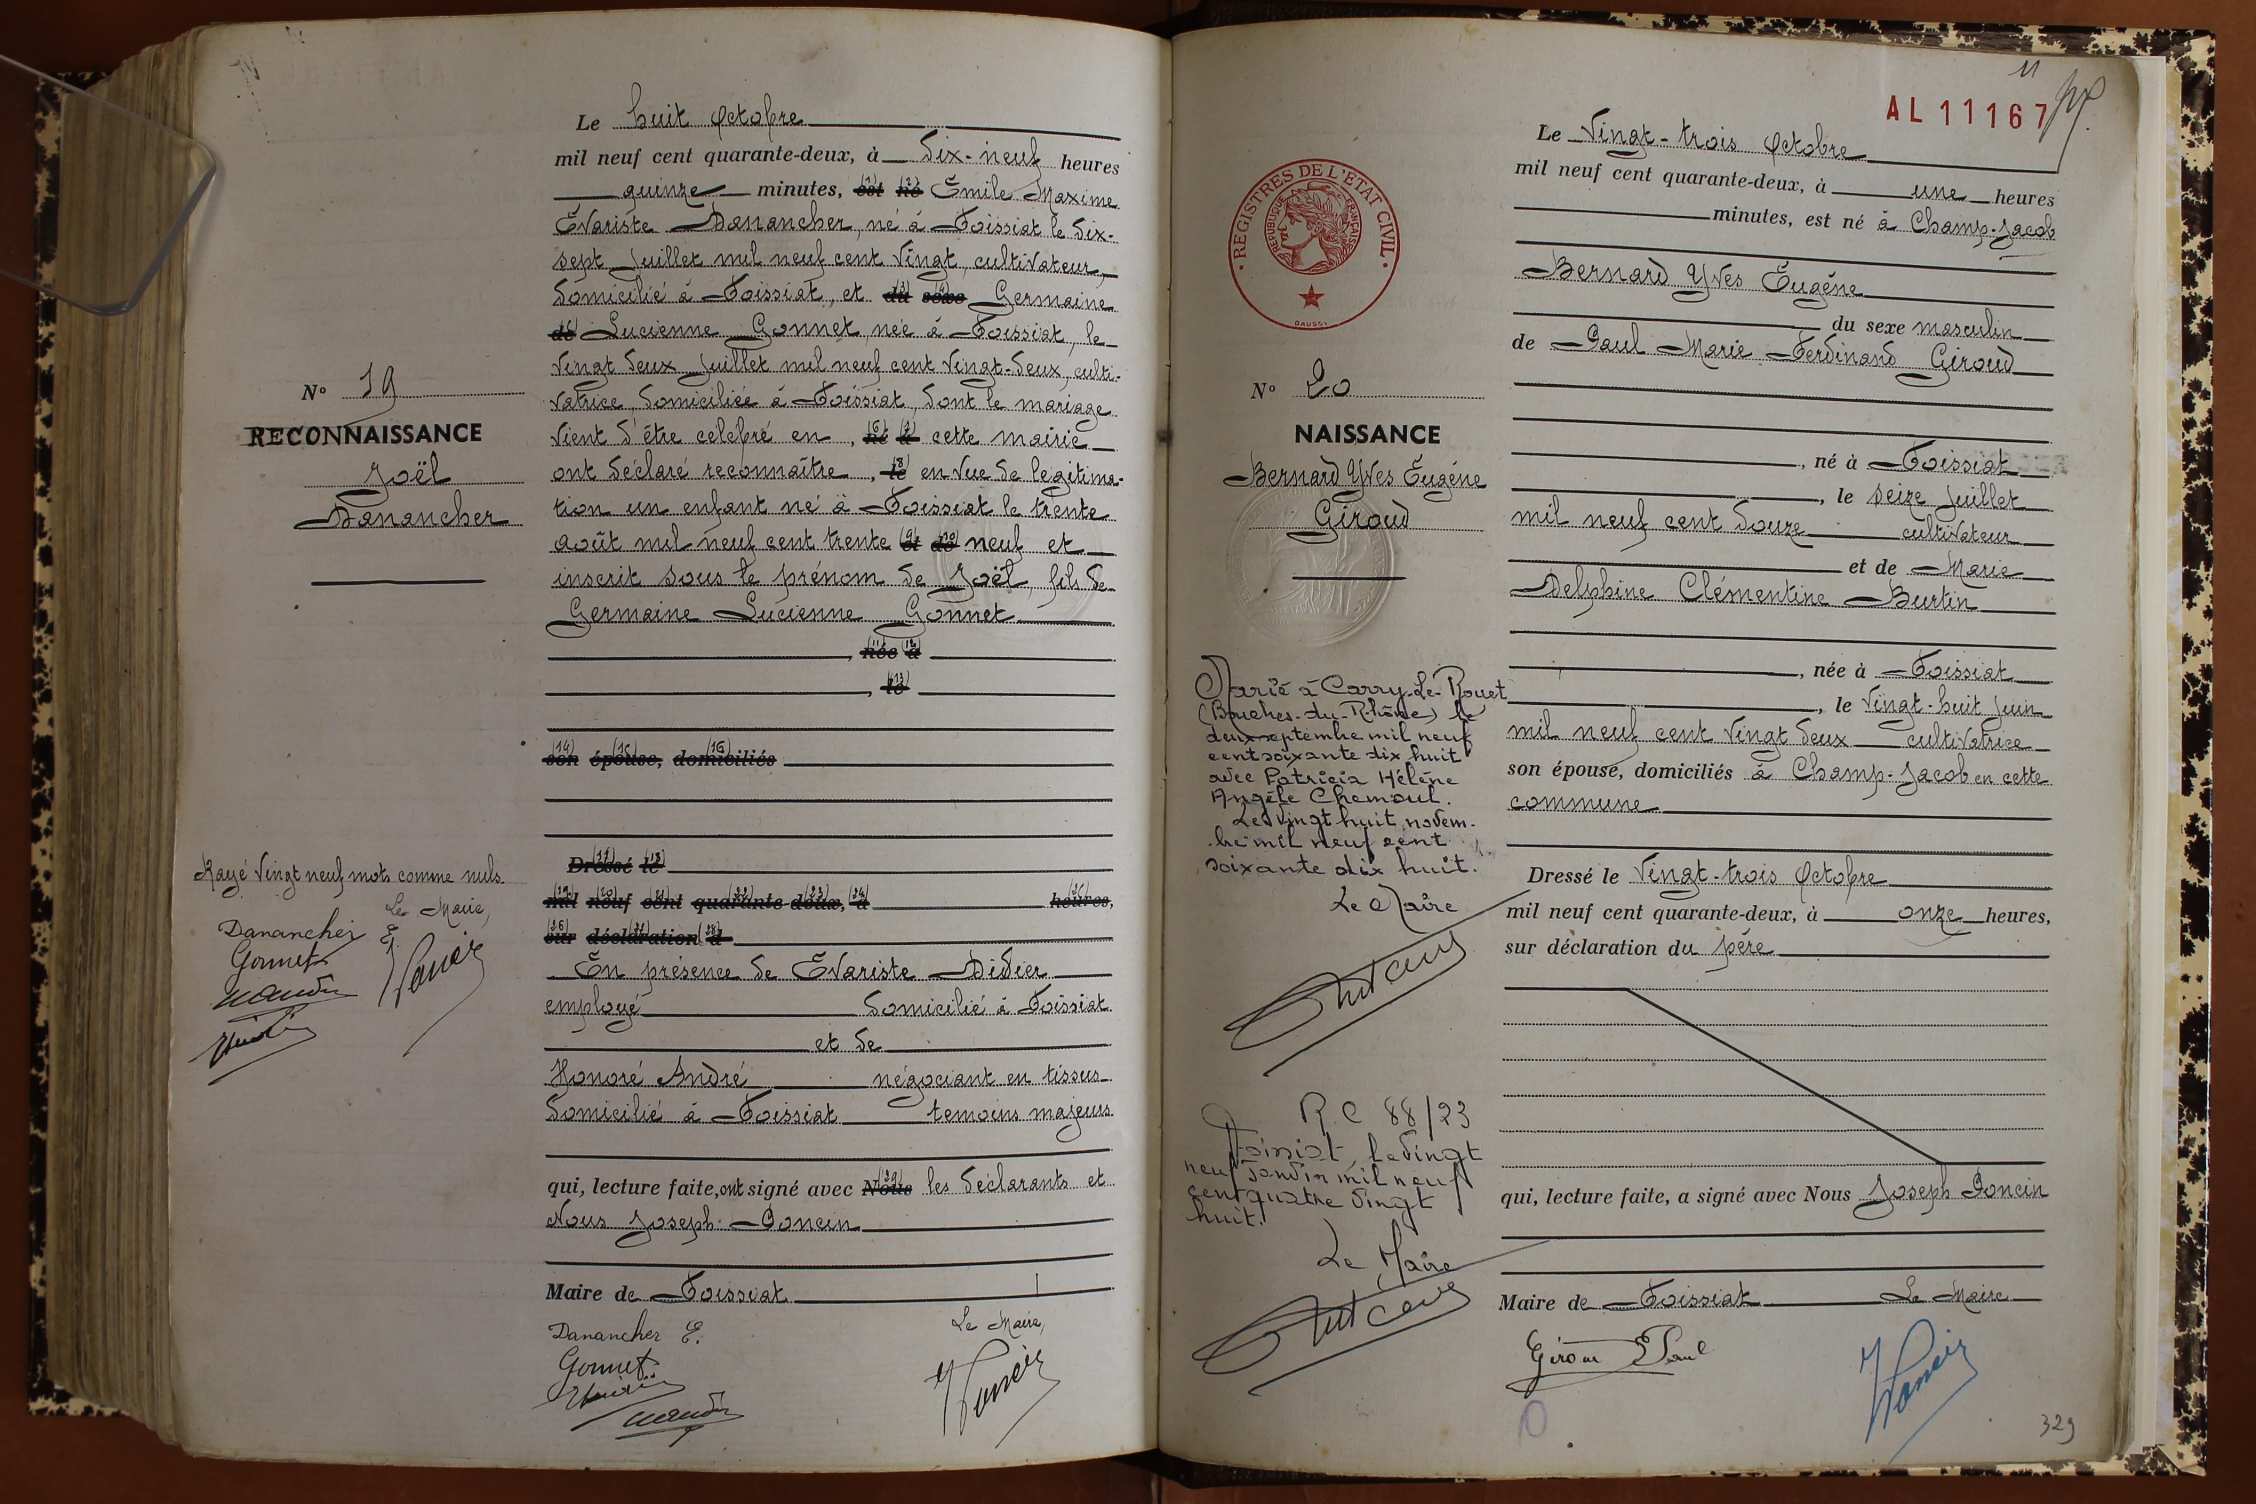 Le huit Octobre
mil neuf cent quarante-deux, à dix-neuf heures
quinze minutes, est né Emile Maxime
Evariste Danancher, né à Foissiat le dix-
sept Juillet mil neuf cent vingt, cultivateur,
domicilié à Foissiat, et du sexe Germaine
de Lucienne Gonnet, née à Foissiat, le
vingt deux Juillet mil neuf cent vingt-deux, culti-
vatrice, domiciliée à Foissiat, dont le mariage
vient d'être celebré en, né à cette mairie
ont déclaré reconnaître, le en vue de legitima-
tion un enfant né à Foissiat le trente
août mil neuf cent trente et de neuf et
inscrit sous le prénom de Joël, fils de
Germaine Lucienne Gonnet
, née à
, le
son épouse, domiciliés
Dressé le
mil neuf cent quarante-deux, à heures,
sur déclaration d
En présence de Evariste Didier
employé domicilié à Foissiat
et de
Honoré André négociant en tissus
domicilié à Foissiat temoins majeurs
qui, lecture faite, ont signé avec Nous les déclarants et
Nous Joseph Poncin
Maire de Foissiat
Le Maire,
Danancher E.
Gonnet
Poncin
N° 19
RECONNAISSANCE
Joël
Danancher
Rayé vingt neuf mots comme nuls
Le Maire,
Danancher E.
Gonnet
Poncin
11
AL 11167
Le Vingt-trois Octobre
mil neuf cent quarante-deux, à une heures
minutes, est né à Champ-Jacob
Bernard Yves Eugéne
du sexe masculin
de Paul Marie Ferdinand Giroud
, né à Foissiat
, le seize Juillet
mil neuf cent douze cultivateur
et de Marie
Delphine Clémentine Burtin
, née à Foissiat
, le vingt-huit Juin
mil neuf cent vingt deux cultivatrice
son épouse, domiciliés à Champ-Jacob en cette
commune
Dressé le vingt-trois Octobre
mil neuf cent quarante-deux, à onze heures,
sur déclaration du père
qui, lecture faite, a signé avec Nous Joseph Poncin
Maire de Foissiat Le Maire
Giroud Paul
Poncin
329
REGISTRES DE L'ETAT CIVIL
REPUBLIQUE FRANÇAISE
N° 20
NAISSANCE
Bernard Yves Eugéne
Giroud
Marié à Carry-Le-Rouet
(Bouches-du-Rhône) le
deux septembre mil neuf
cent soixante dix huit
avec Patricia Hélène
Angèle Chemoul.
Le vingt huit novem-
bre mil neuf cent
soixante dix huit.
Le Maire
R C 88/23
Foissiat, le vingt
neuf janvier mil neuf
cent quatre vingt
huit.
Le Maire